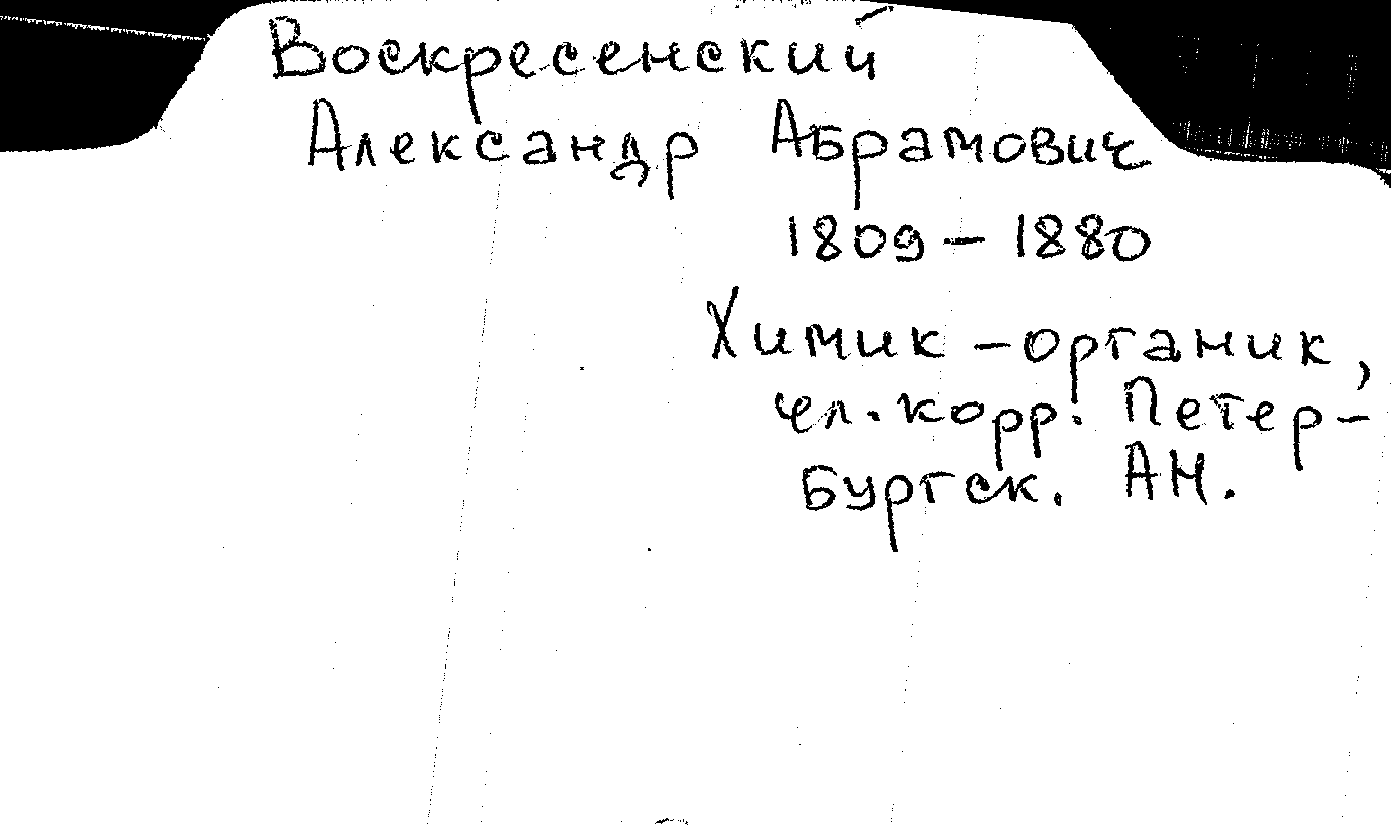 Воскресенский
Александр Абрамович
1809 – 1880
Химик – органик,
чл. корр. Петер-
бургск. АН.